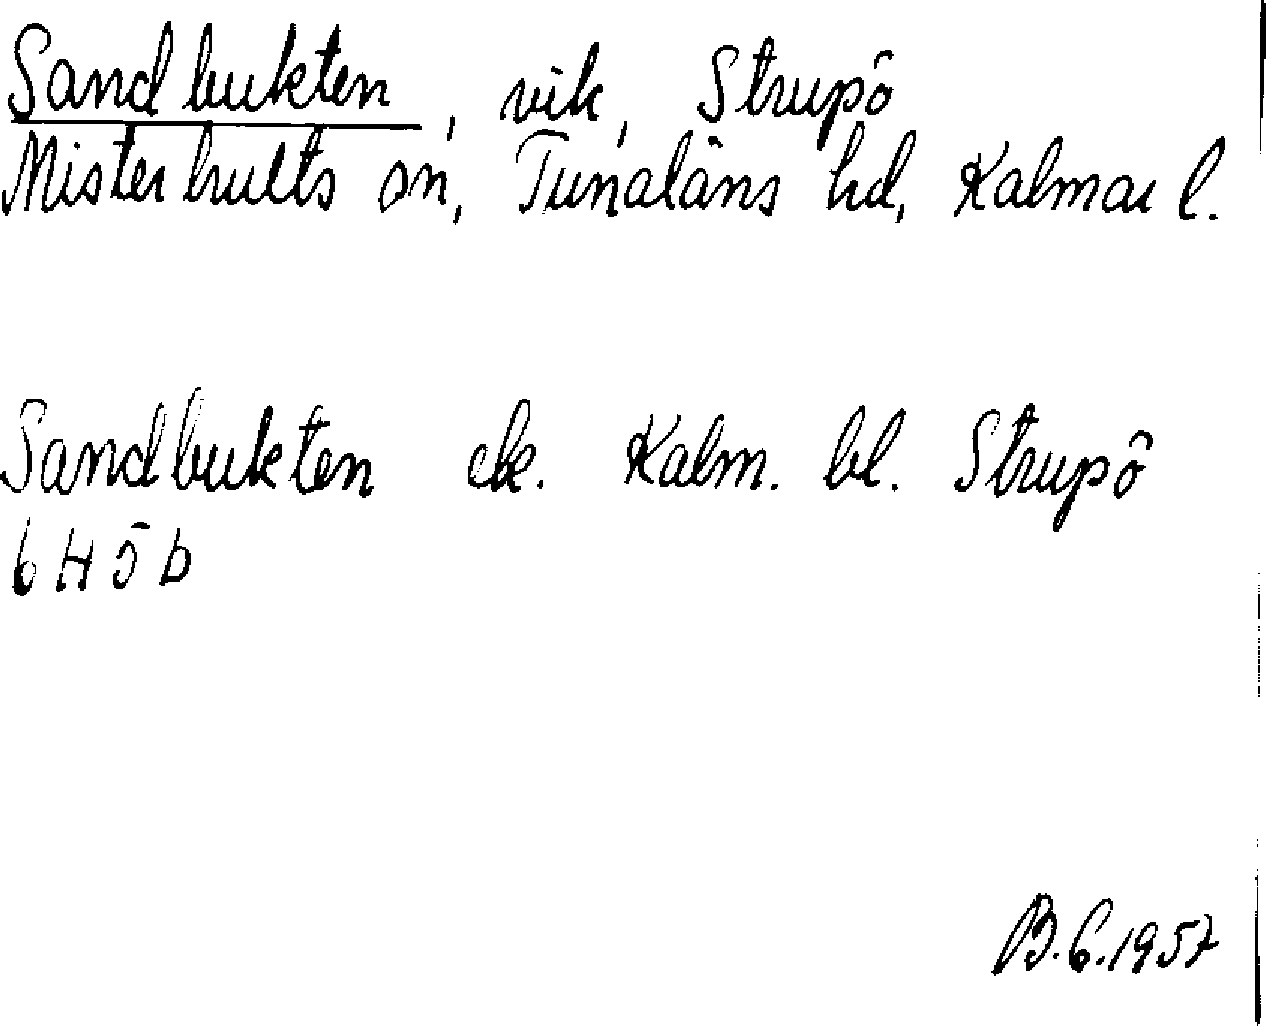 Sandbukten, vik, Strupö
Misterhults sn, Tunaläns hd, Kalmar l.
Sandbukten ek. Kalm. bl. Strupö
6H5b
B.G.1957